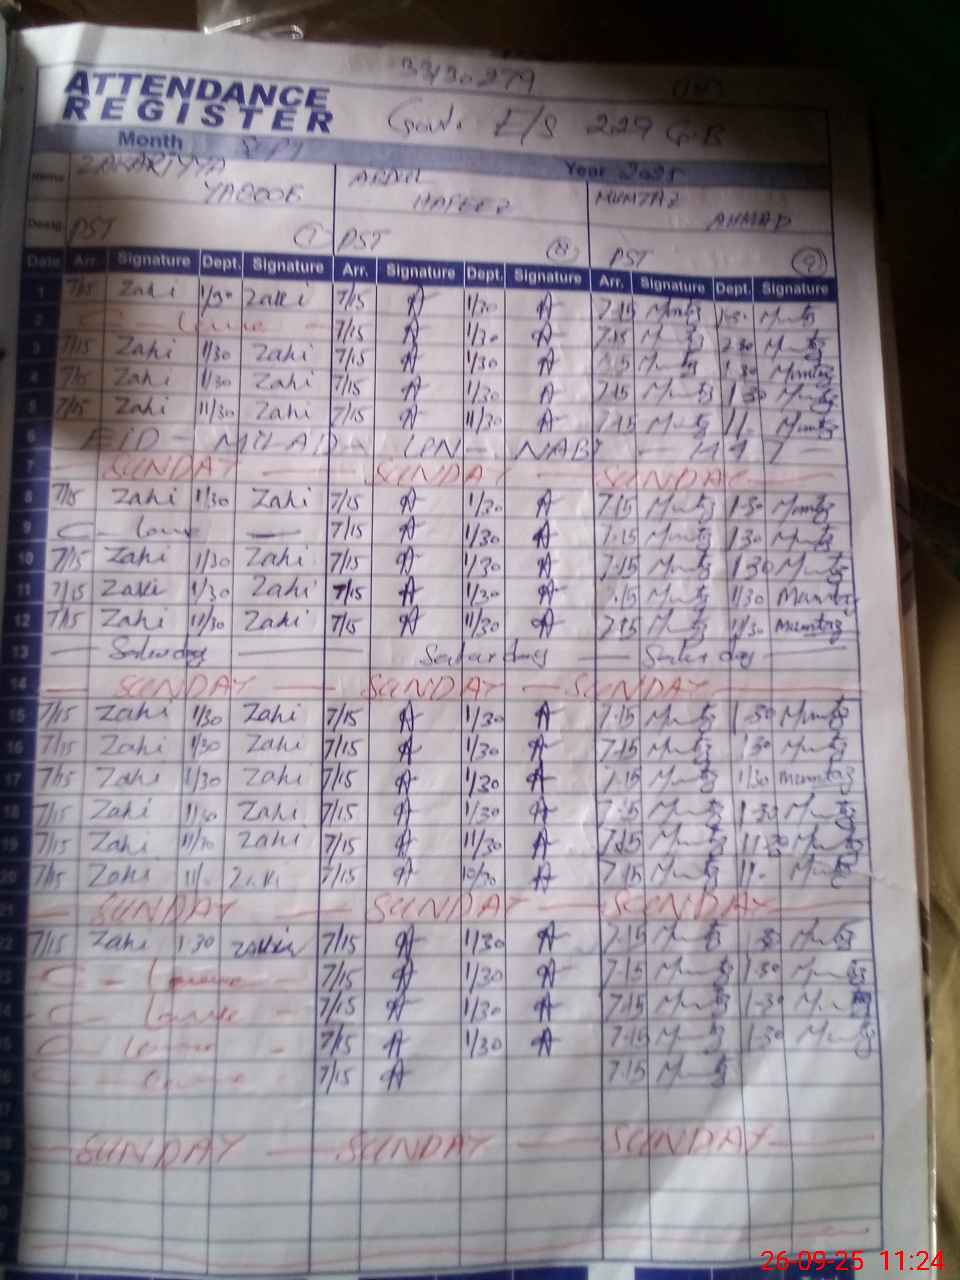 33130279
ATTENDANCE
REGISTER
Govt. E/S 229 G.B
Month SEPT Year 2025
Name ZAKARIYYA YAQOOB HAFEEZ MUMTAZ AHMAD
Desig. PST PST (8) PST (9)
Date Arr. Signature Dept. Signature Arr. Signature Dept. Signature Arr. Signature Dept. Signature
1 7/15 Zaki 1/30 Zakki 7/15 A 1/30 A 7.15 Mumtaz 1-30 Mumtaz
2 C - Leave - 7/15 A 1/30 A 7.15 Mumtaz 1.30 Mumtaz
3 7/15 Zaki 1/30 Zaki 7/15 A 1/30 A 7.15 Mumtaz 1.30 Mumtaz
4 7/15 Zaki 1/30 Zaki 7/15 A 1/30 A 7.15 Mumtaz 1.30 Mumtaz
5 7/15 Zaki 11/30 Zaki 7/15 A 11/30 A 7.15 Mumtaz 11. Mumtaz
6 EID - MILAD - NABI
7 SUNDAY SUNDAY SUNDAY
8 7/15 Zaki 1/30 Zaki 7/15 A 1/30 A 7.15 Mumtaz 1-30 Mumtaz
9 C - Leave 7/15 A 1/30 A 7.15 Mumtaz 1.30 Mumtaz
10 7/15 Zaki 1/30 Zaki 7/15 A 1/30 A 7.15 Mumtaz 1.30 Mumtaz
11 7/15 Zakki 1/30 Zaki 7/15 A 1/30 A 7.15 Mumtaz 1/30 Mumtaz
12 7/15 Zaki 11/30 Zaki 7/15 A 11/30 A 7.15 Mumtaz 11/30 Mumtaz
13 Saturday Saturday Saturday
14 SUNDAY SUNDAY SUNDAY
15 7/15 Zaki 1/30 Zaki 7/15 A 1/30 A 7.15 Mumtaz 1.30 Mumtaz
16 7/15 Zaki 1/30 Zaki 7/15 A 1/30 A 7.15 Mumtaz 1.30 Mumtaz
17 7/15 Zaki 1/30 Zaki 7/15 A 1/30 A 7.15 Mumtaz 1/30 Mumtaz
18 7/15 Zaki 1/30 Zaki 7/15 A 1/30 A 7.15 Mumtaz 1-30 Mumtaz
19 7/15 Zaki 11/30 Zaki 7/15 A 11/30 A 7.15 Mumtaz 11.30 Mumtaz
20 7/15 Zaki 11/- 7/15 A 10/30 A 7.15 Mumtaz 11- Mumtaz
21 SUNDAY SUNDAY SUNDAY
22 7/15 Zaki 1.30 7/15 A 1/30 A 7.15 Mumtaz 1.30 Mumtaz
23 C - Leave 7/15 A 1/30 A 7.15 Mumtaz 1-30 Mumtaz
24 C - Leave 7/15 A 1/30 A 7.15 Mumtaz 1-30 Mumtaz
25 C - Leave - 7/15 A 1/30 A 7.15 Mumtaz 1-30 Mumtaz
26 C - Leave - 7/15 A 7.15 Mumtaz
27
28 SUNDAY SUNDAY SUNDAY
26-09-25 11:24